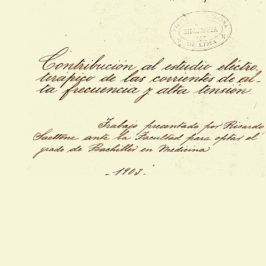 BIBLIOTECA
DE LIMA
Contribucion al estudio electro,
terapico de las corrientes de al-
ta frecuencia y alta tension
Trabajo presentado por Ricardo
Saettone ante la Facultad para optar el
grado de Bachiller en Medicina
-1903.-